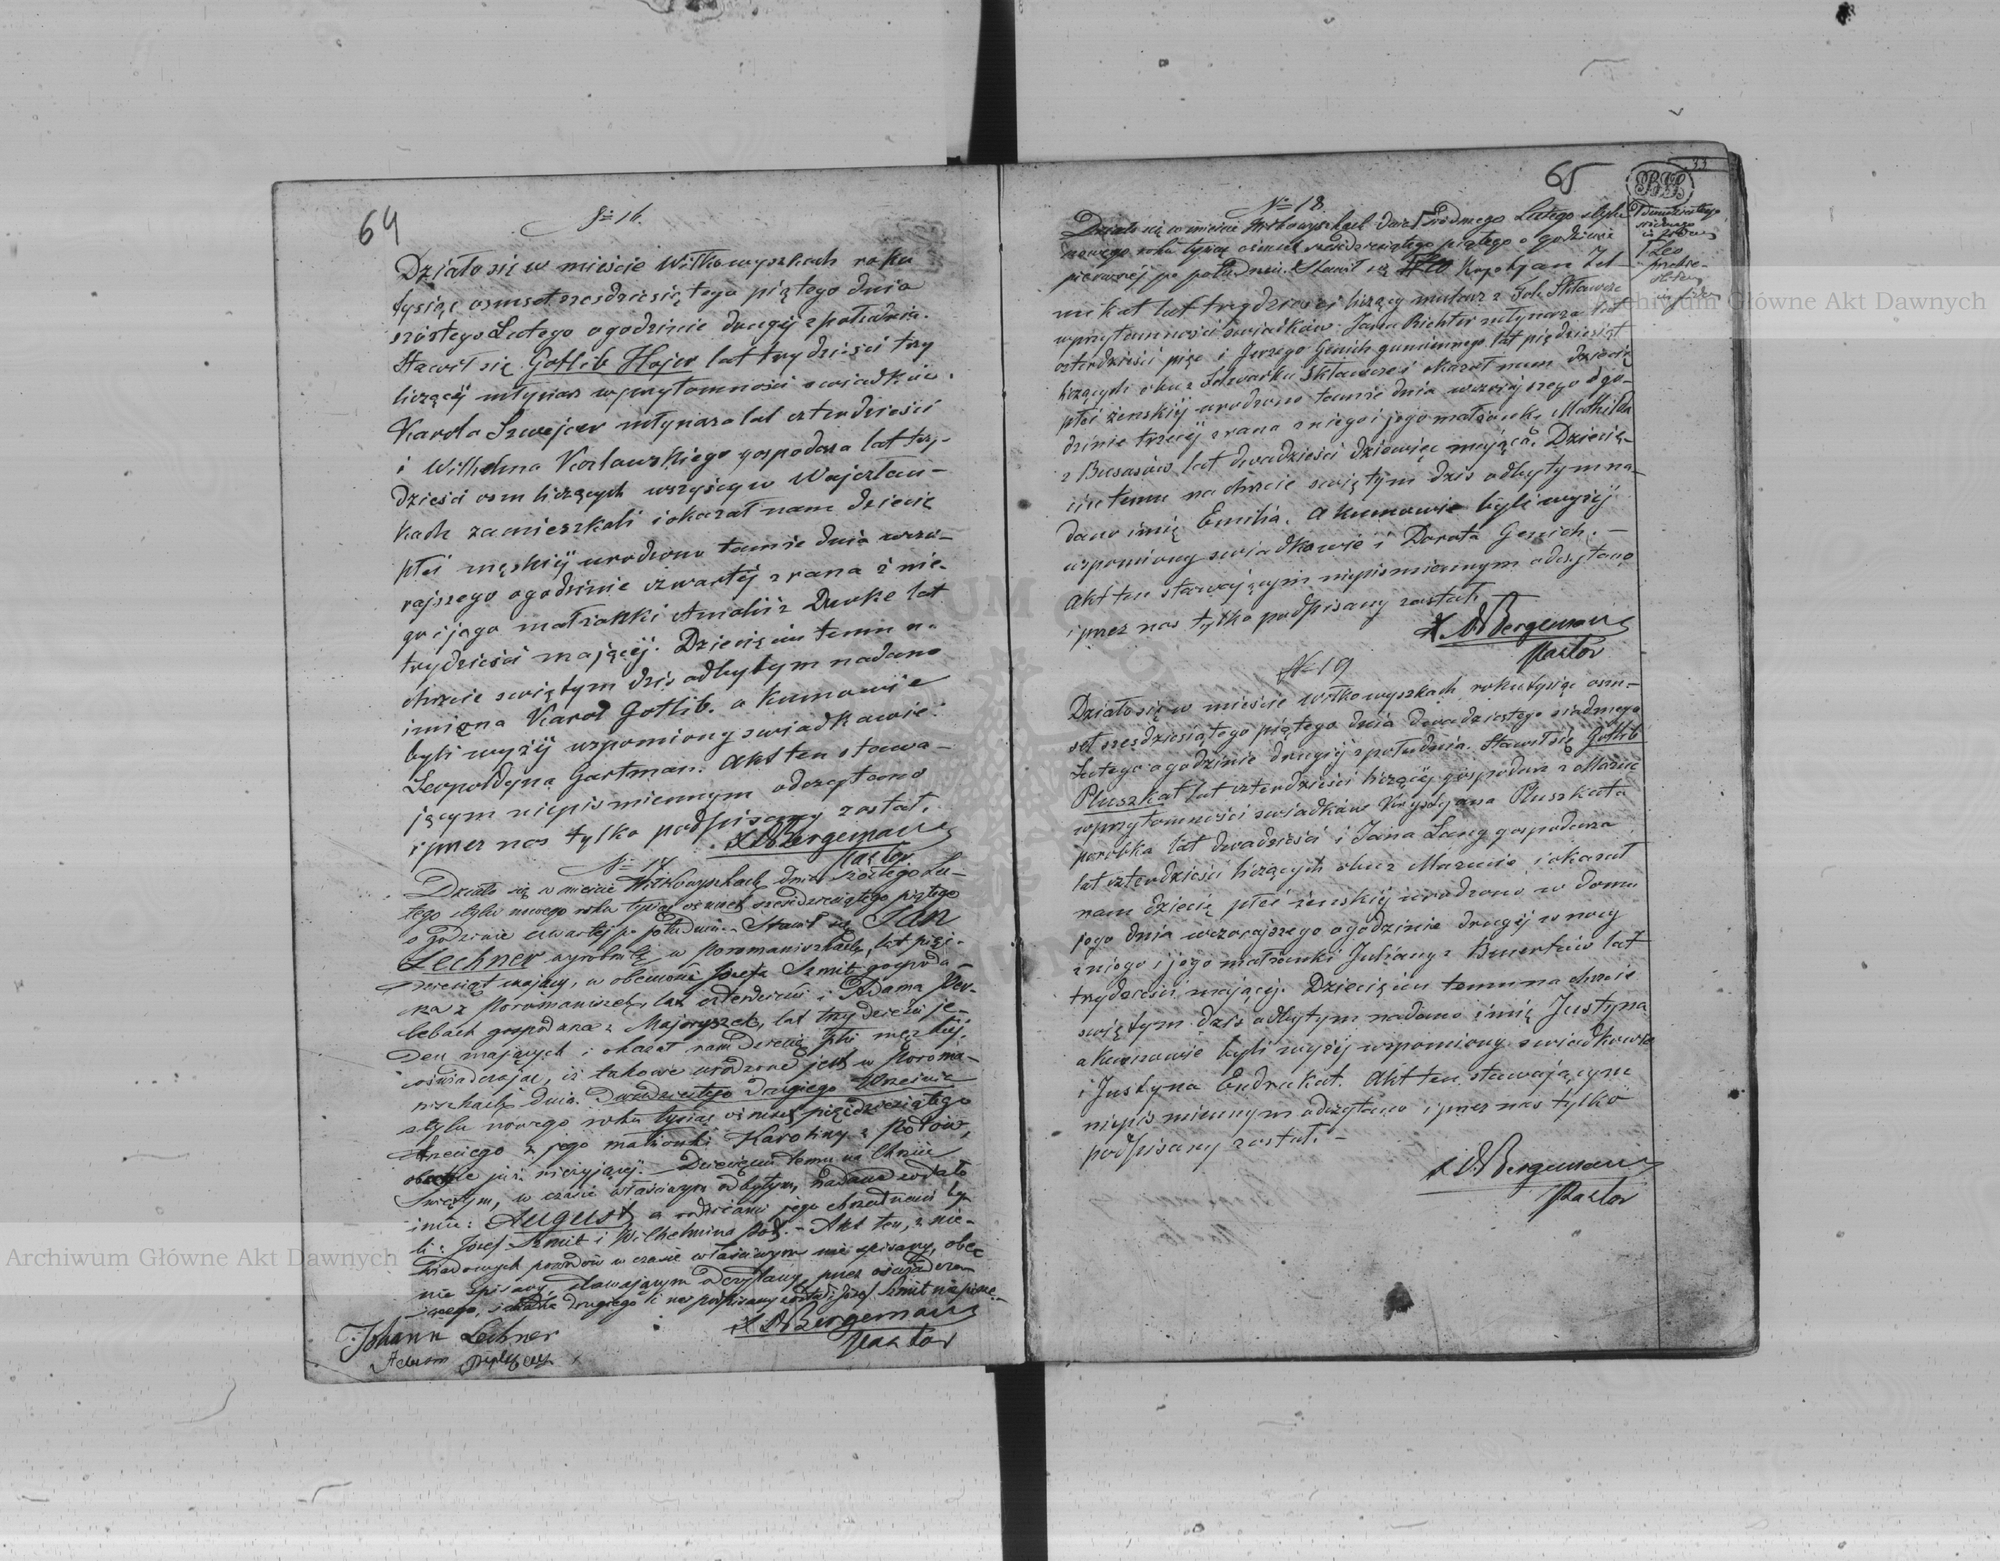 64
№ 16.
Działo się w mieście Wiłkowyszkach roku
tysiąc osmset szesdziesiątego piątego dnia
szóstego Lutego o godzinie drugij z południa.
Stawił się Gotlib Hojer lat trzydzieści trzy
liczący młynarz w przytomności swiadków.
Karola Szwejcer młynarza lat czterdzieści
i Wilhelma Kozlowskiego gospodarza lat trzy-
dzieści osm liczących wszyscy w Wojczlaw-
kach zamieszkali i okazał nam dziecię
płci męskiij urodzone tamże dnia wczo-
rajszego o godzinie czwartéj z rana z nie-
go i jego małżonki Amalii z Denke lat
trzydzieści mającéj. Dziecięciu temu na
chrzcie świętym dziś odbytym nadano
imiona Karol Gotlib. a kumowie
byli wyżij wspomiony swiadkowie.
Leopoldyna Gartman. Akt ten stawa-
jącym niepismiennym odczytano
i przez nas tylko podpisany został.
X. A. Bergemann
Pastor
№ 17
Działo się w mieście Wiłkowyszkach dnia szóstego Lu-
tego stylu nowego roku tysiąc osmset sześćdziesiątego piątego
o godzinie czwartej po południu. Stawił się Jan
Lechner wyrobnik w Poromaniszkach, lat pięć-
dziesiąt mający, w obecności Jozefa Szmit gospoda-
rza z Poromaniszek, lat czterdzieści i Adama Per-
lebach gospodarza z Majoryszek, lat trzydzieści je-
den mających i okazał nam dziecię płci męzkiej
oświadczając, iż takowe urodzone jest w Poroma-
niszkach dnia Dwudziestego drugiego Wrzesnia
stylu nowego roku tysiąc osmset pięćdziesiątego
trzeciego z jego małżonki Karoliny z Potow,
obecnie już nieżyjącej. Dziecięciu temu na Chrzcie
Świętym, w czasie właściwym odbytym, nadane zostało
imie: August, a rodzicami jego chrzestnemi by-
li: Jozef Szmit i Wilhelmina Pot. - Akt ten, z nie-
wiadomych powodów w czasie właściwym nie spisany, obec
nie spisany, stawającym odczytany, przez oświadcza-
jącego, świadka drugiego i nas podpisany został Jozef Szmit niepiśmie-
X. A. Bergemann
Pastor
Johann Lechner
Adam
65
33
№ 18.
Działo się w mieście Wiłkowyszkach dnia siódmego Lutego stylu
nowego roku tysiąc osmset sześćdziesiątego piątego o godzinie
pierwszej po południu. Stawił się Krystyan Zel
mikat lat trzydzieści liczący mularz z Fol. Sklawsze
w przytomności swiadków. Jana Richter młynarza lat
czterdzieści pięc i Jerzego Genich gumiennego lat pięcdziesiąt
liczących obu z Folwarku Sklawsze i okazał nam dziecię
płci żenskiij urodzone tamże dnia wczorajszego o go-
dzinie trzeciij z rana z niego i jego małżonki Mathilda
z Busasów lat dwadzieści dziewięc mającéj. Dziecię-
ciu temu na chrzcie swiętym dzis odbytym na-
dano imię Emilia. a kumowie byli wyżij
wspomiony swiadkowie i Dorota Genich. —
Akt ten stawającym niepismiennym odczytano
i przez nas tylko podpisany został.
X. A. Bergemann
Pastor
№ 19
Działo się w mieście Wiłkowyszkach roku tysiąc osm-
set szesdziesiątego piątego dnia dwudziestego siodmego
Lutego o godzinie drugij z południa. Stawił się Gotlib
Pluszkat lat czterdzieści liczący gospodarz z Mazucie
w przytomności swiadków Krystyana Pluszkata
parobka lat dwadzieści i Jana Lang gospodarza
lat czterdzieści liczących obu z Mazucie i okazał
nam dziecię płci żenskij urodzone w domu
jego dnia wczorajszego o godzinie drugij w nocy
z niego i jego małżonki Julianny z Bauertów lat
trzydzieści mającéj. Dziecięciu temu na chrzcie
swiętym dzis odbytym nadano imię Justyna
a kumowie byli wyżij wspomiony swiadkowie
i Justyna Endrukat. Akt ten stawającym
niepismiennym odczytano i przez nas tylko
podpisany został. —
X. A. Bergemann
Pastor
Archiwum Główne Akt Dawnych
Archiwum Główne Akt Dawnych